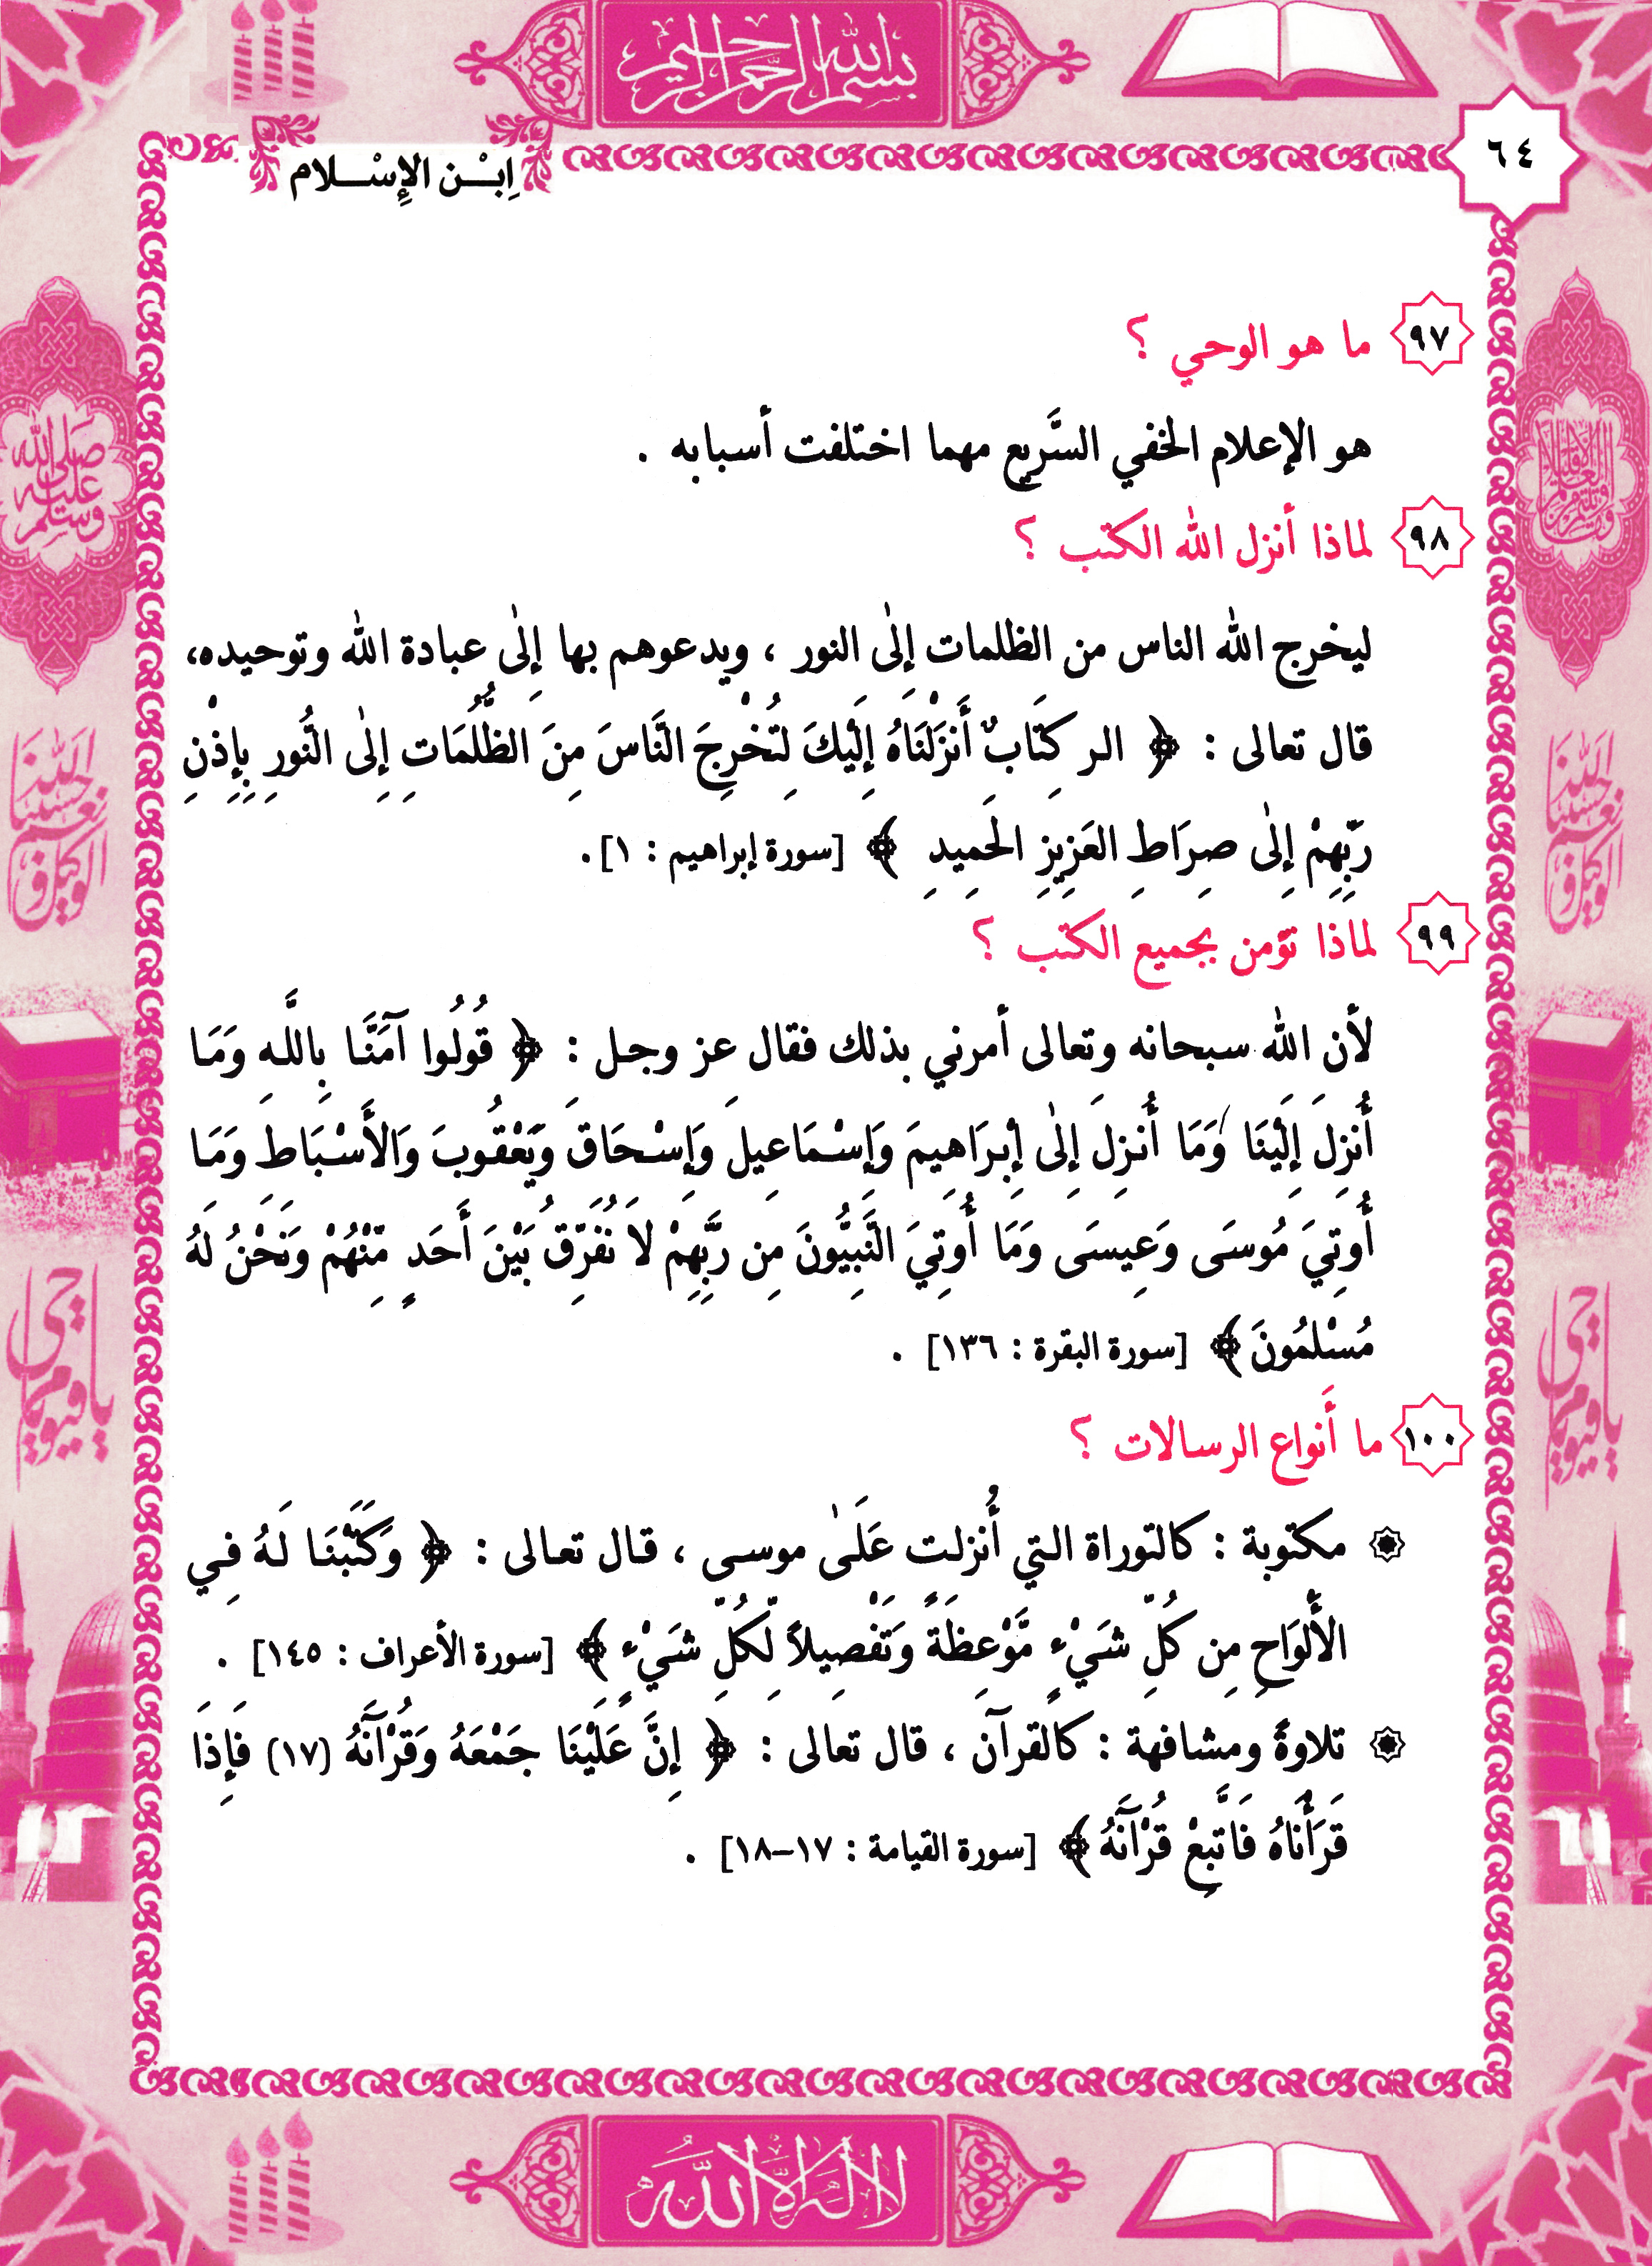 بسم الله الرحمن الرحيم
٦٤
اِبْـن الإِسْـلام
٩٧ ما هو الوحي ؟
هو الإعلام الخفي السَّريع مهما اختلفت أسبابه .
٩٨ لماذا أنزل الله الكتب ؟
ليخرج الله الناس من الظلمات إلى النور ، ويدعوهم بها إِلى عبادة الله وتوحيده،
قال تعالى : ﴿ الر كِتَابٌ أَنزَلْنَاهُ إِلَيْكَ لِتُخْرِجَ النَّاسَ مِنَ الظُّلُمَاتِ إِلى النُّورِ بِإِذْنِ
رَبِّهِمْ إِلى صِرَاطِ العَزِيزِ الحَمِيدِ ﴾ [سورة إبراهيم : ١].
٩٩ لماذا تؤمن بجميع الكتب ؟
لأن الله سبحانه وتعالى أمرني بذلك فقال عز وجل : ﴿ قُولُوا آمَنَّا بِاللَّهِ وَمَا
أُنزِلَ إِلَيْنَا وَمَا أُنزِلَ إِلى إِبْرَاهِيمَ وَإِسْمَاعِيلَ وَإِسْحَاقَ وَيَعْقُوبَ وَالأَسْبَاطِ وَمَا
أُوتِيَ مُوسَى وَعِيسَى وَمَا أُوتِيَ النَّبِيُّونَ مِن رَّبِّهِمْ لاَ نُفَرِّقُ بَيْنَ أَحَدٍ مِّنْهُمْ وَنَحْنُ لَهُ
مُسْلِمُونَ ﴾ [سورة البقرة : ١٣٦] .
١٠٠ ما أَنواع الرسالات ؟
مكتوبة : كالتوراة التي أُنزلت عَلَى موسى ، قال تعالى : ﴿ وَكَتَبْنَا لَهُ فِي
الأَلْوَاحِ مِن كُلِّ شَيْءٍ مَّوْعِظَةً وَتَفْصِيلاً لِّكُلِّ شَيْءٍ ﴾ [سورة الأعراف : ١٤٥] .
تلاوةً ومشافهة : كالقرآن ، قال تعالى : ﴿ إِنَّ عَلَيْنَا جَمْعَهُ وَقُرْآنَهُ (١٧) فَإِذَا
قَرَأْنَاهُ فَاتَّبِعْ قُرْآنَهُ ﴾ [سورة القيامة : ١٧–١٨] .
صلى الله عليه وسلم
حسبنا الله ونعم الوكيل
حسبنا الله ونعم الوكيل
يا حي يا قيوم
يا حي يا قيوم
لا إله إلا الله